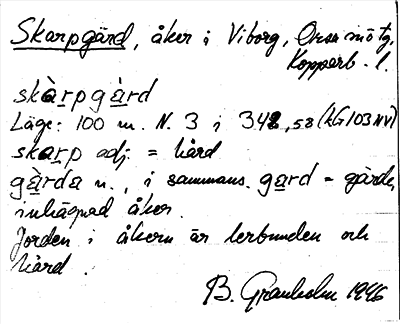 Skarpgärd, åker i Viborg, Orsa
Kopparb. l.
skàrpgàrd
Läge: 100 m. N. 3 i 342,58 (kG103NV)
skarp adj. = hård
gàrda n., i sammans. gard = gärde,
inhägnad åker.
Jorden i åkern är lerbunden och
hård.
B. Granholm 1946